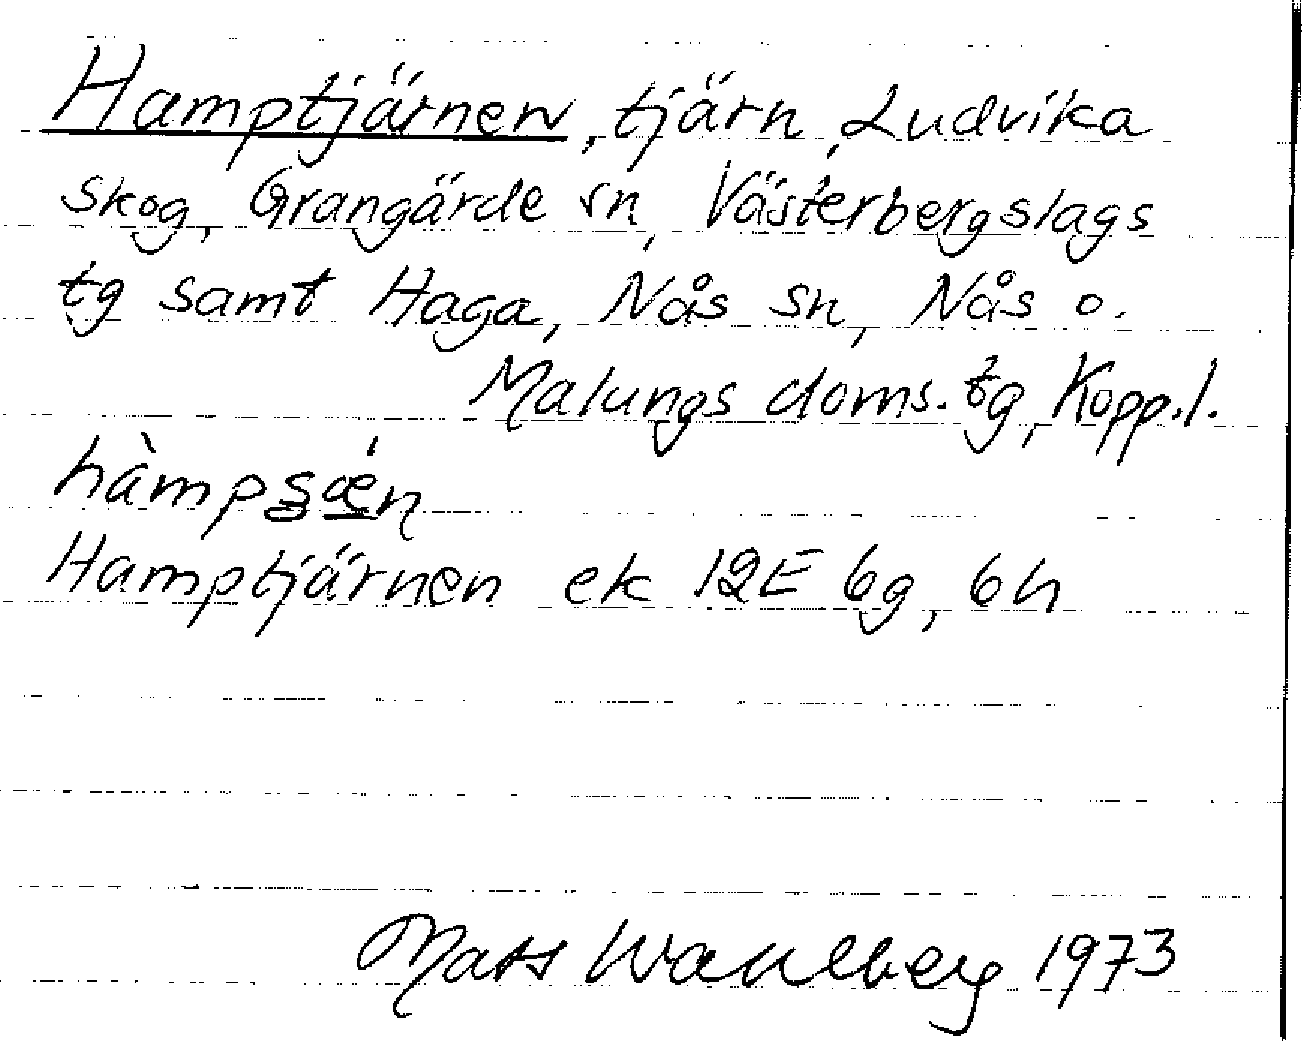 Hamptjärnen, tjärn, Ludvika
skog, Grangärde sn, Västerbergslags
tg samt Haga, Nås sn, Nås o.
Malungs doms. tg, Kopp.l.
hàmpsǽn
Hamptjärnen ek 12E 6g, 6h
Mats Wahlberg 1973